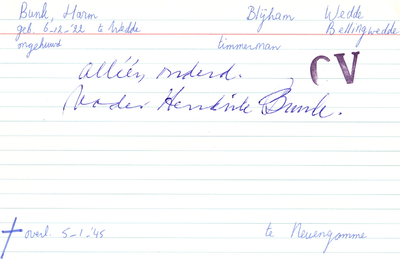 Bunk, Harm Blijham Wedde
geb 6-12-'22 te Wedde Bellingwedde
ongehuwd timmerman
Alléén, onderd.
CV
Vader Hendrik Bunk.
† overl. 5-1-'45 te Neuengamme